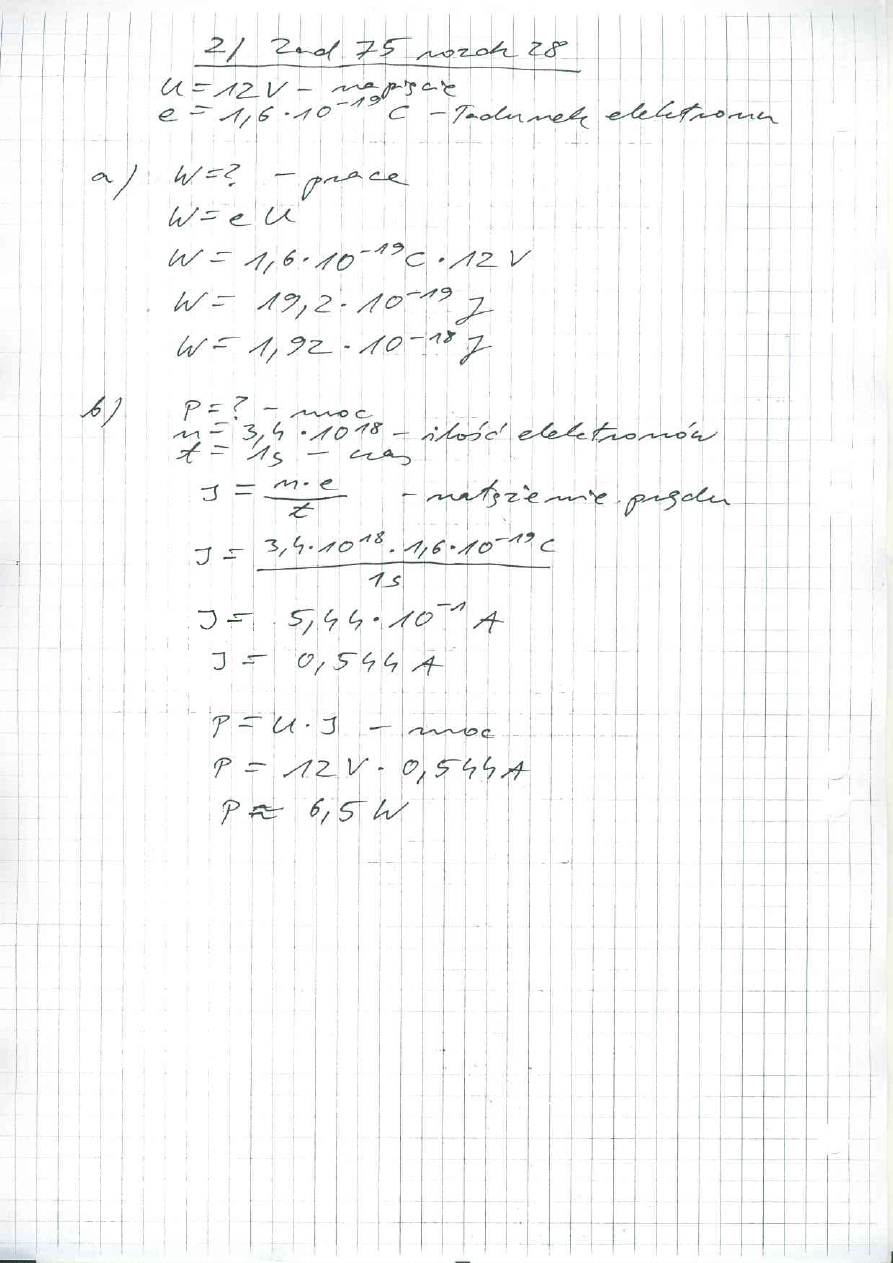 2) Zad 75 rozdz 28
U = 12 V – napięcie
e = 1,6 · 10⁻¹⁹ C – ładunek elektronu
a) W = ? – praca
W = e U
W = 1,6 · 10⁻¹⁹ C · 12 V
W = 19,2 · 10⁻¹⁹ J
W = 1,92 · 10⁻¹⁸ J
b) P = ? – moc
n = 3,4 · 10¹⁸ – ilość elektronów
t = 1s – czas
J = n · e / t – natężenie prądu
J = 3,4 · 10¹⁸ · 1,6 · 10⁻¹⁹ C / 1s
J = 5,44 · 10⁻¹ A
J = 0,544 A
P = U · J – moc
P = 12 V · 0,544 A
P ≈ 6,5 W